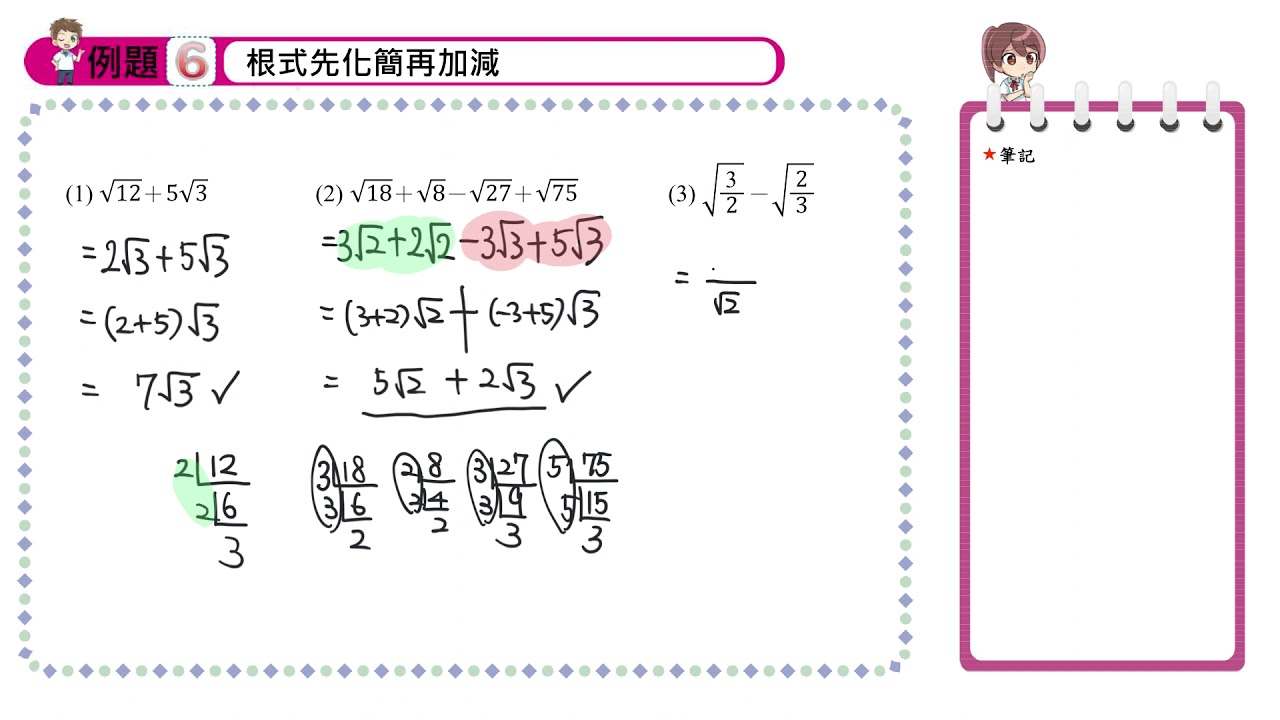 例題 6 根式先化簡再加減
★筆記
(1) √12 + 5√3
= 2√3 + 5√3
= (2+5)√3
= 7√3 ✓
2 12
2 6
3
(2) √18 + √8 − √27 + √75
= 3√2 + 2√2 − 3√3 + 5√3
= (3+2)√2 + (-3+5)√3
= 5√2 + 2√3 ✓
3 18
3 6
2
2 8
4
2
3 27
3 9
3
5 75
5 15
3
(3) √(3/2) − √(2/3)
= /√2